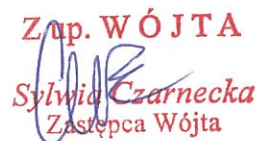 Z up. WÓJTA
Sylwia Czarnecka
Zastępca Wójta